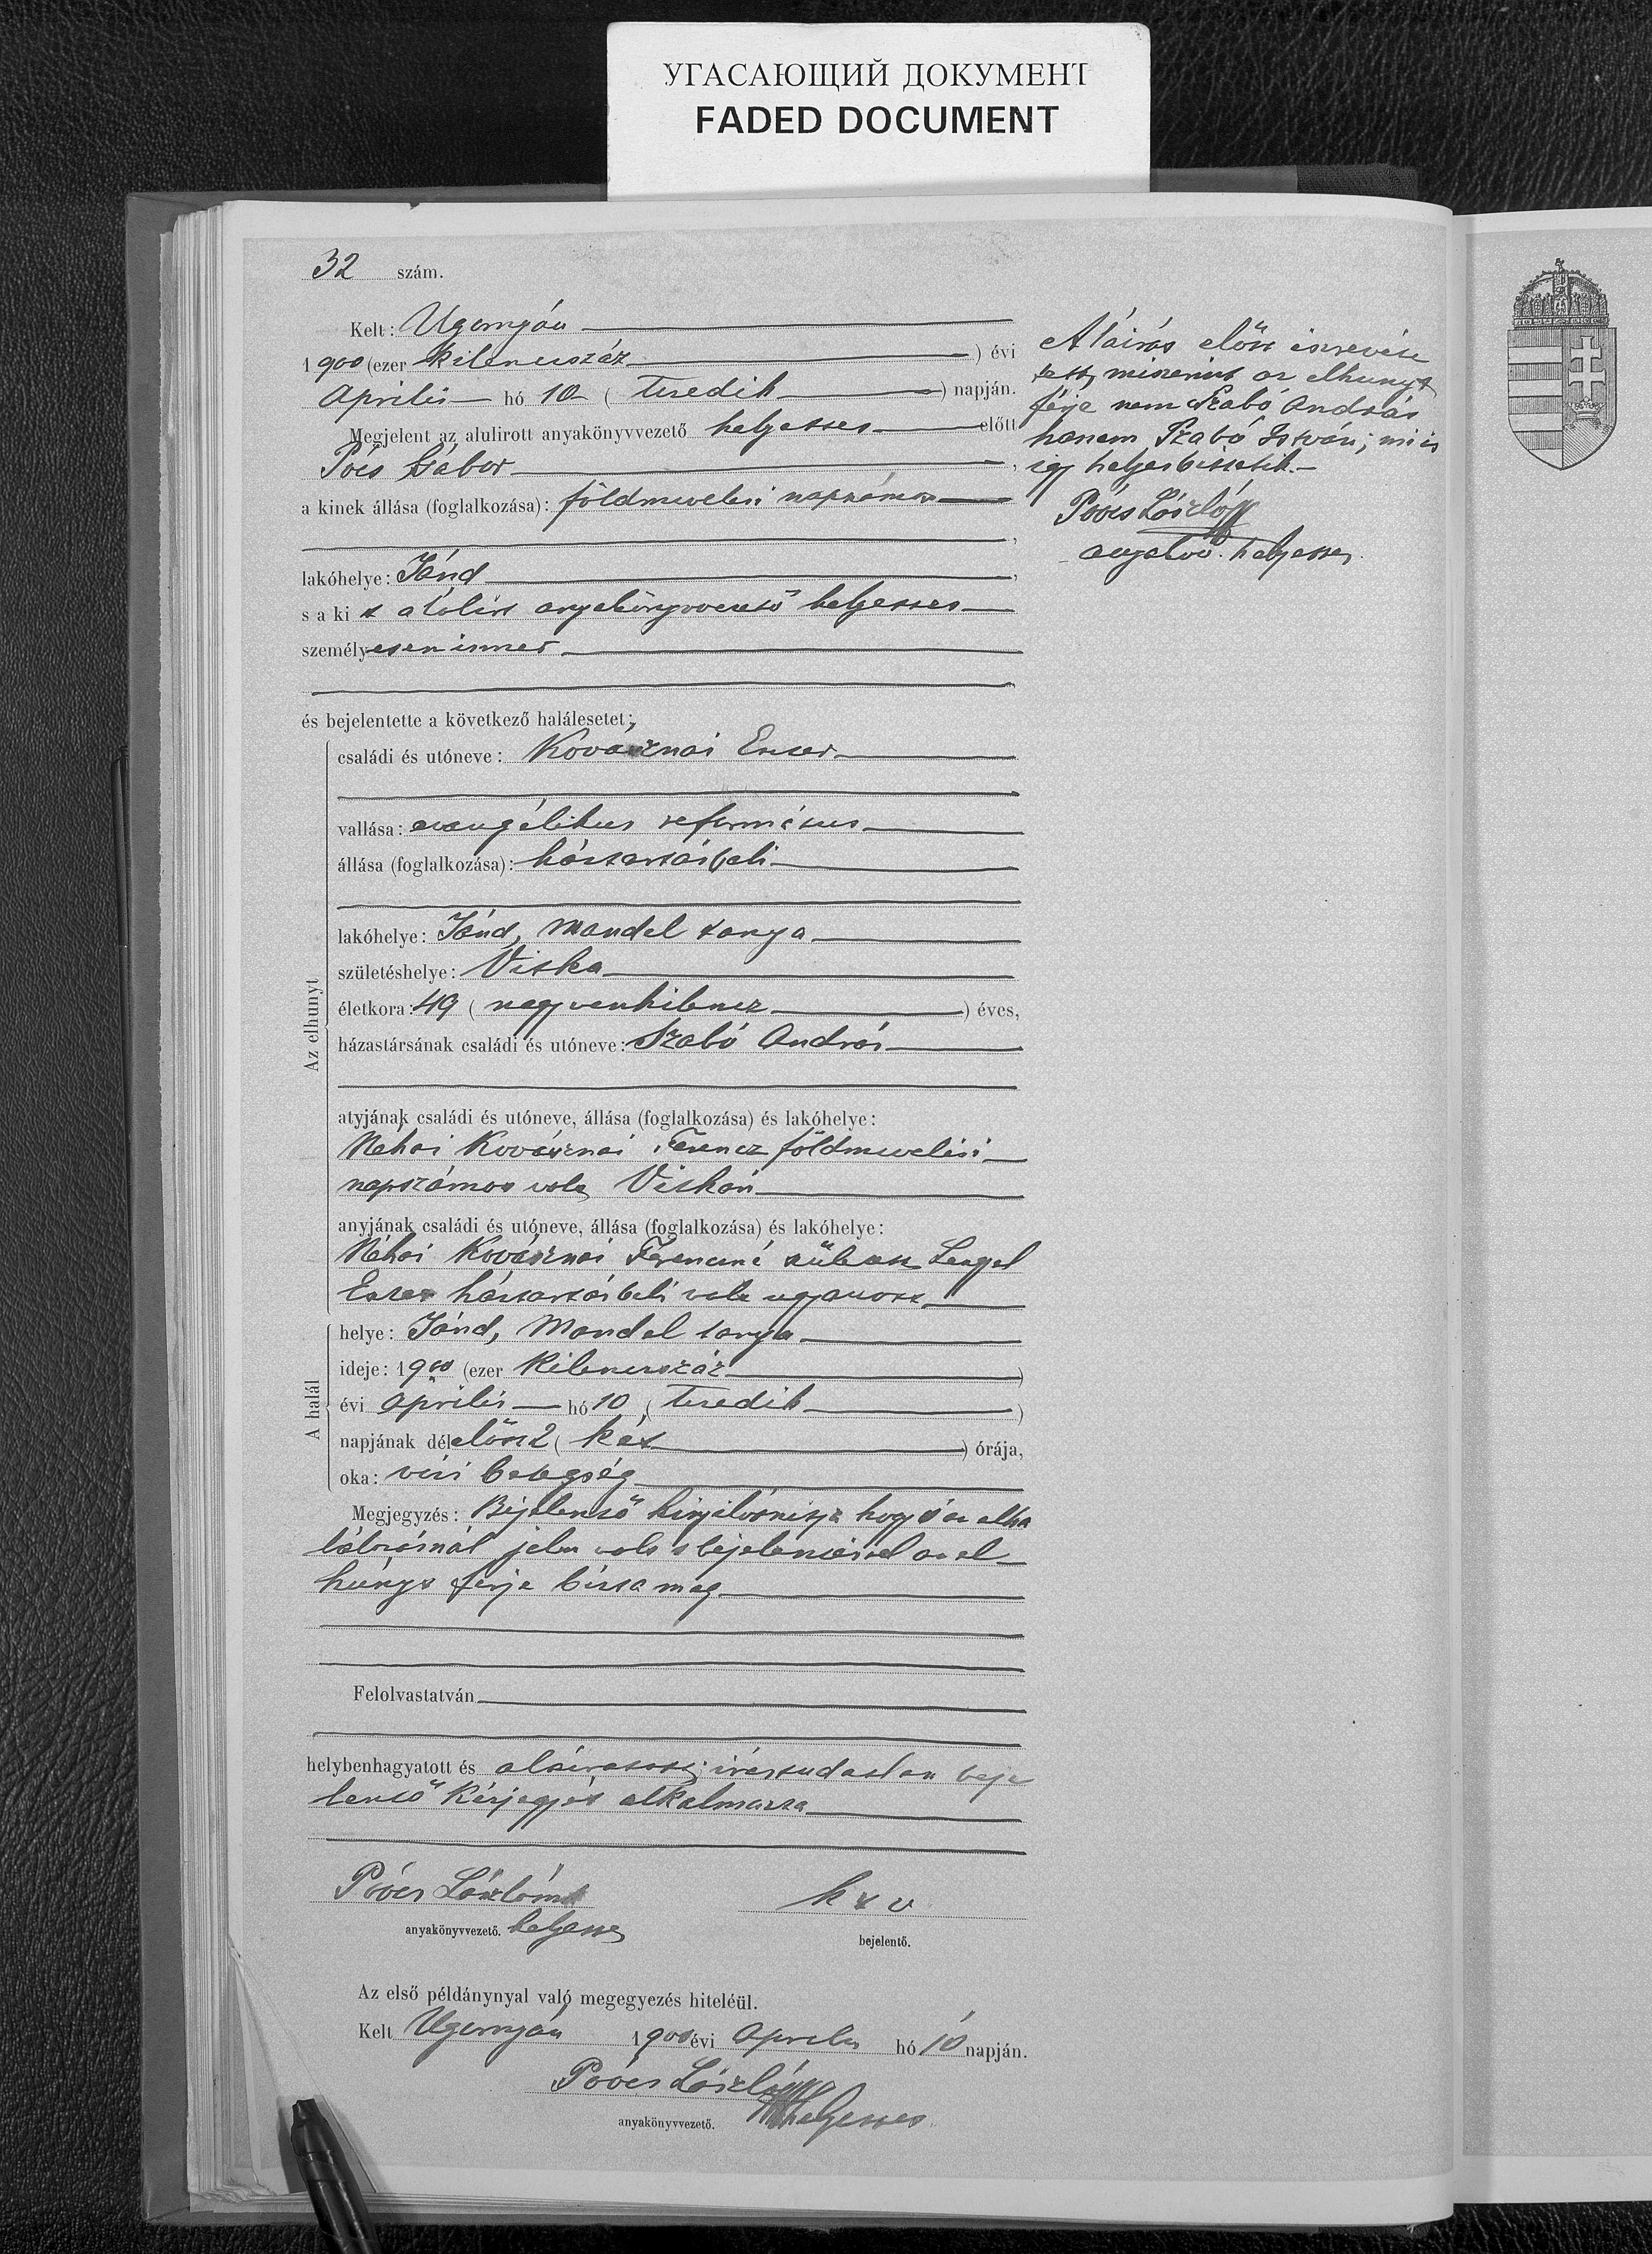 УГАСАЮЩИЙ ДОКУМЕНТ
FADED DOCUMENT
32 szám.
Kelt: Ugornyán
1900 (ezer kilenczszáz ) évi
április hó 10 ( tizedik ) napján.
Megjelent az alulirott anyakönyvvezető helyettes előtt
Pócs Gábor ,
a kinek állása (foglalkozása): földmivelési napszámos
,
lakóhelye: Jánd ,
s a kit alólirt anyakönyvvezető helyettes
személyesen ismer
,
és bejelentette a következő halálesetet:
családi és utóneve: Kovásznai Eszter
vallása: evangélikus református
állása (foglalkozása): háztartásbeli
lakóhelye: Jánd, Mandel tanya
születéshelye: Viska
életkora: 49 ( negyvenkilencz ) éves,
házastársának családi és utóneve: Szabó András
Az elhunyt
atyjának családi és utóneve, állása (foglalkozása) és lakóhelye:
Néhai Kovásznai Ferencz földmivelési
napszámos volt Viskán
anyjának családi és utóneve, állása (foglalkozása) és lakóhelye:
Néhai Kovásznai Ferenczné született Lengel
Eszter háztartásbeli volt ugyanott
helye: Jánd, Mandel tanya
ideje: 1900 (ezer kilenczszáz )
évi április hó 10 ( tizedik )
napjának délelőtt 2 ( két ) órája,
oka: vési betegség
A halál
Megjegyzés: Bejelentő kinyilvánitja hogy ő az elha
lálozásnál jelen volt s bejelentéssel az el
húnyt férje bizta meg
Felolvastatván
helybenhagyatott és aláiratott; irástudatlan beje
lentő kézjegyét alkalmazza
Póvcs László
anyakönyvvezető. helyettes
k x v
bejelentő.
Az első példánynyal való megegyezés hiteléül.
Kelt Ugornyán 1900 évi április hó 10 napján.
Póvcs László
anyakönyvvezető. helyettes
Aláirás előtt észrevéte
tett, miszerint az elhunyt
férje nem Szabó András
hanem Szabó István; mi is
igy helyesbittetik.
Póvcs László
anyakvv. helyettes